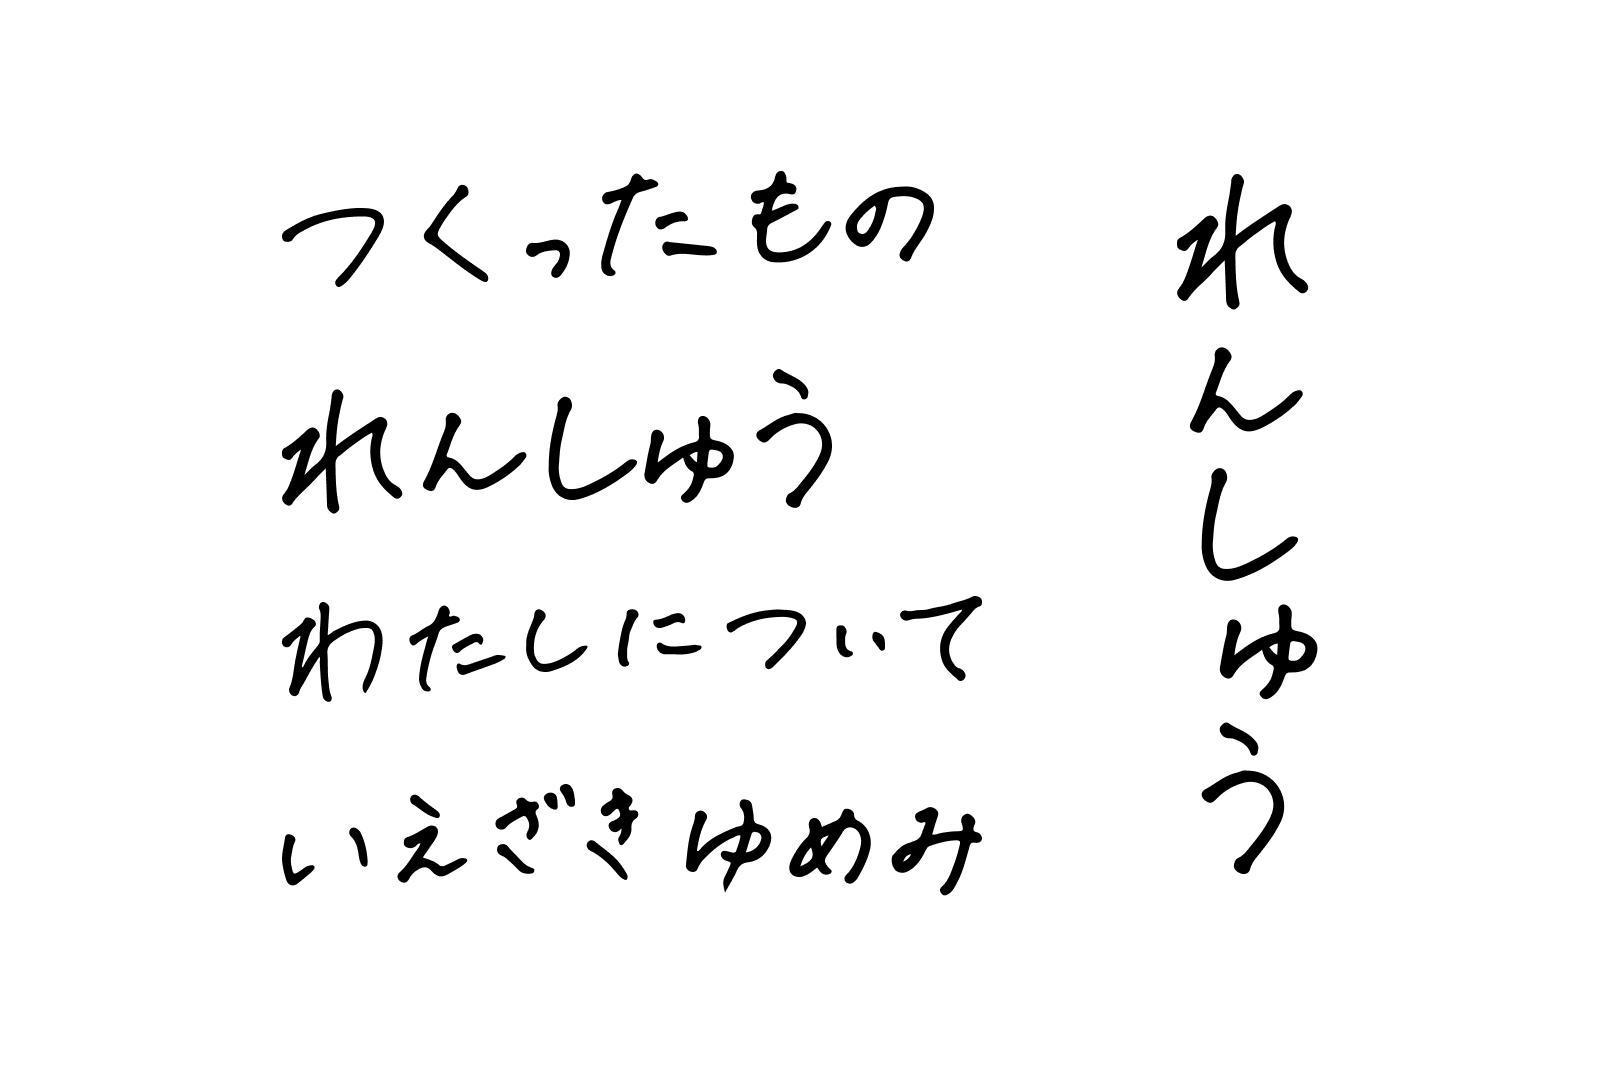 つくったもの
れんしゅう
わたしについて
いえざきゆめみ
れんしゅう